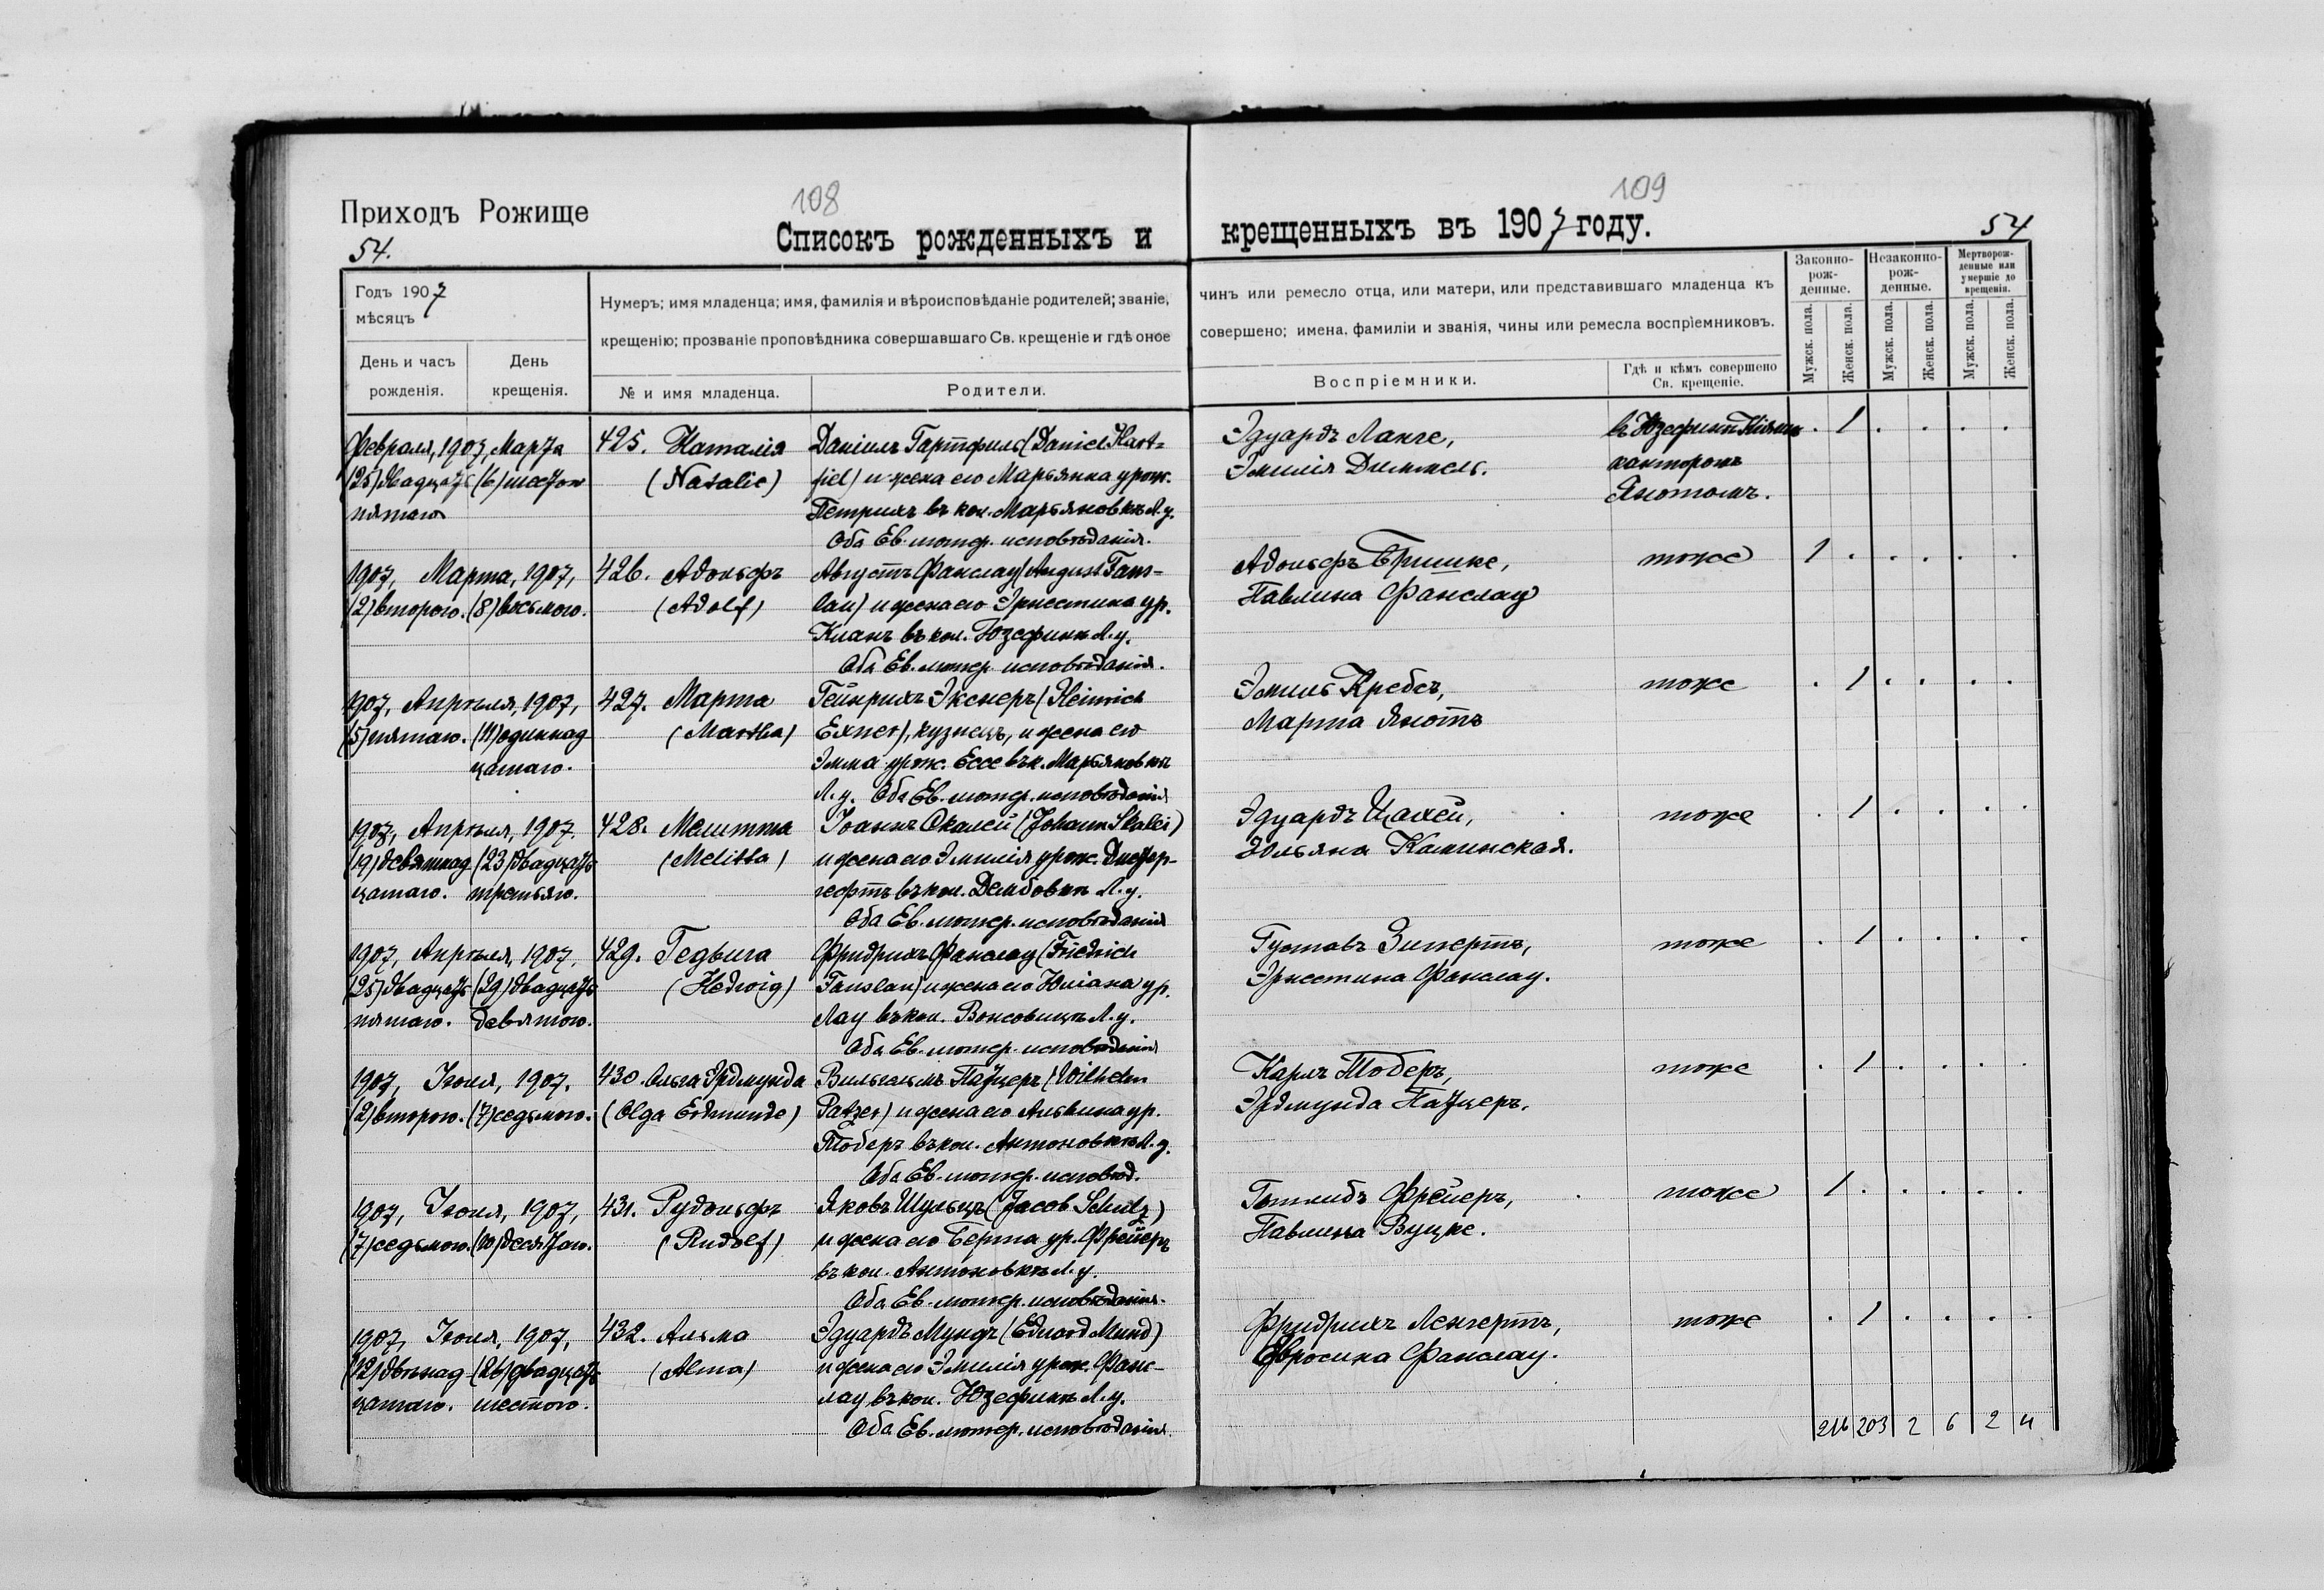 108
109
Приходъ Рожище
54.
Списокъ рожденныхъ и
крещенныхъ въ 1907 году.
54
Годъ 1907
мѣсяцъ
День и часъ
рожденія.
День
крещенія.
Нумеръ; имя младенца; имя, фамилія и вѣроисповѣданіе родителей; званіе,
крещенію; прозваніе проповѣдника совершавшаго Св. крещеніе и гдѣ оное
№ и имя младенца.
Родители.
чинъ или ремесло отца, или матери, или представившаго младенца къ
совершено; имена, фамиліи и званія, чины или ремесла воспріемниковъ.
Воспріемники.
Гдѣ и кѣмъ совершено
Св. крещеніе.
Законно-
рож-
денные.
Незаконно-
рож-
денные.
Мертворож-
денные или
умершіе до
крещенія.
Мужск. пола.
Женск. пола.
Мужск. пола.
Женск. пола.
Мужск. пола.
Женск. пола.
Февраля, 1907, Марта
(25) двадцать (6) шестого
пятаго
425. Наталія
(Natalie)
Даніилъ Гартфиль (Daniel Hart-
fiel) и жена его Марьянна урож.
Петрихъ въ кол. Марьяновкѣ Л. у.
Оба Ев. лютер. исповѣданія.
Эдуардъ Ланге,
Эмилія Диммель.
въ Юзефинѣ
канторомъ
Янотомъ.
. 1 . . . .
1907, Марта, 1907,
(2) второго. (8) восьмого.
426. Адольфъ
(Adolf)
Августъ Фанслау (August Fans-
lau) и жена его Эрнестина ур.
Кланъ въ кол. Юзефинѣ Л. у.
Оба Ев. лютер. исповѣданія.
Адольфъ Бришке,
Павлина Фанслау
тоже
1 . . . . .
1907, Апрѣля, 1907,
(5) пятаго. (11) одиннад
цатаго.
427. Марта
(Martha)
Гейнрихъ Экснеръ (Heinrich
Exner), кузнецъ, и жена его
Эмма урож. Ессе въ к. Марьяновкѣ
Л. у. Оба Ев. лютер. исповѣданія
Эмиль Кребсъ,
Марта Янотъ
тоже
. 1 . . . .
1907, Апрѣля, 1907.
(19) девятнад (23) двадцать
цатаго. третьяго.
428. Мелитта
(Melitta)
Іоаннъ Скалей (Johann Skalei)
и жена его Эмилія урож. Дистер-
гефтъ въ кол. Дембовкѣ Л. у.
Оба Ев. лютер. исповѣданія
Эдуардъ Цахей,
Юльяна Каминская.
тоже
. 1 . . . .
1907, Апрѣля, 1907.
(25) двадцать (29) двадцать
пятаго. девятого.
429. Гедвига
(Hedwig)
Фридрихъ Фанслау (Friedrich
Fanslau) и жена его Юліана ур.
Лау въ кол. Вонсовицѣ Л. у.
Оба Ев. лютер. исповѣданія
Густавъ Зипертъ,
Эрнестина Фанслау.
тоже
. 1 . . . .
1907, Іюля, 1907.
(2) второго. (7) седьмого.
430. Ольга Эрдмунда
(Olga Erdmunde)
Вильгельмъ Патцеръ (Wilhelm
Patzer) и жена его Альвина ур.
Тоберъ въ кол. Антоновкѣ Л. у.
Оба Ев. лютер. исповѣд.
Карлъ Тоберъ,
Эрдмунда Патцеръ.
тоже
. 1 . . . .
1907, Іюля, 1907,
(7) седьмого. (10) десятого.
431. Рудольфъ
(Rudolf)
Яковъ Шульцъ (Jacob Schulz)
и жена его Берта ур. Фрейеръ
въ кол. Антоновкѣ Л. у.
Оба Ев. лютер. исповѣданія.
Готлибъ Фрейеръ,
Павлина Вуцке.
тоже
1 . . . . .
1907, Іюля, 1907,
(12) двѣнад (26) двадцать
цатаго. шестого.
432. Альма
(Alma)
Эдуардъ Мундъ (Eduard Mund)
и жена его Эмилія урож. Фанс-
лау въ кол. Юзефинѣ Л. у.
Оба Ев. лютер. исповѣданія.
Фридрихъ Ленгертъ,
Евросина Фанслау.
тоже
. 1 . . . .
216 203 2 6 2 4